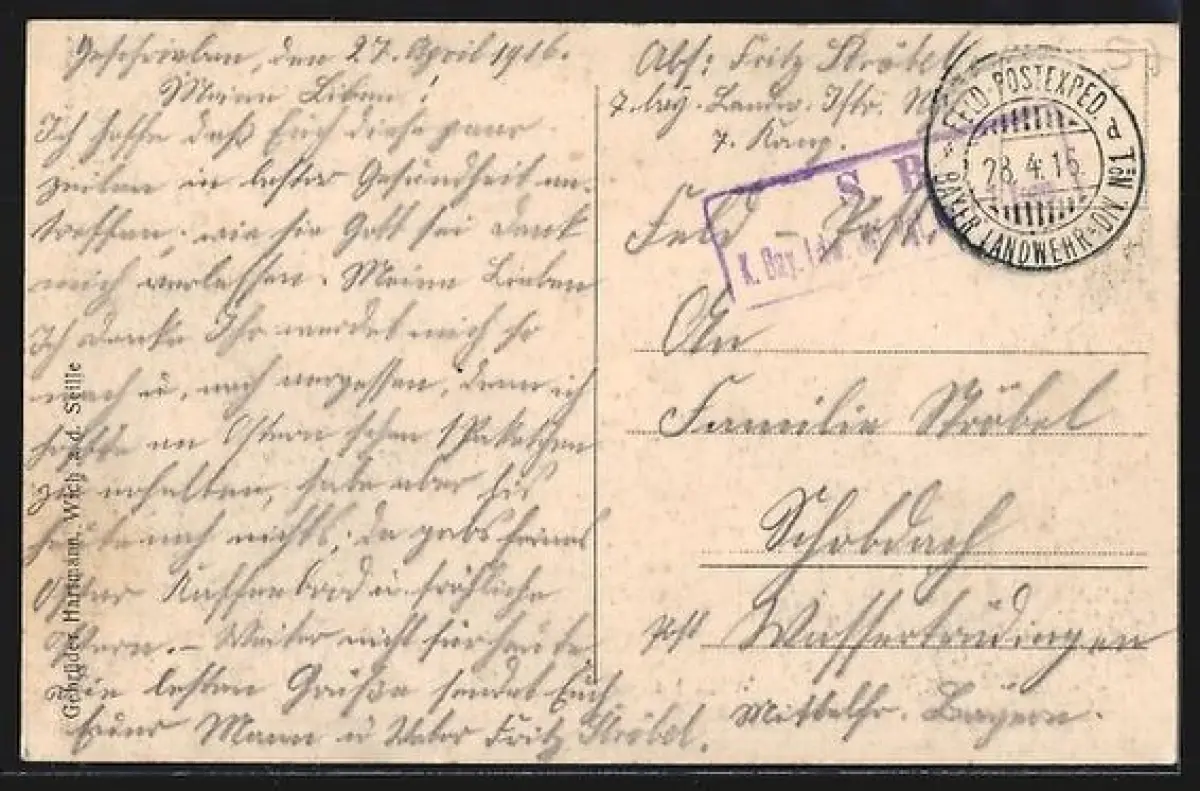 Geschrieben, den 27. April 1916.
Meine Liben!
Ich hoffe daß Euch diese paar
zeilen in bester Gesundheit an-
treffen, wie sie Gott sei Dank
mich verlassen. Meine Lieben
Ich denke Ihr werdet mich so
nach u. nach vergessen, denn ich
hoffte an Ostern schon 1 Paketchen
zu erhalten, habe aber bis
heute noch nichts, da gabs keines
Oster u. fröhliche
Ostern. – Weiter nicht für heute
Die besten Grüße sendet Euch
Euer Mann u Vater Fritz Ströbel.
Abs: Fritz Ströbel
7. bay. Landw. Iftr.
7. Komp.
S. B
K. Bay. Ldw.
FELD-POSTEXPED. d
BAYER. LANDWEHR-DIV. No 1
28.4.16
Feld – Post.
An
Familie Ströbel
Schobdach
Post Wassertrüdingen
Mittelfr. Bayern.
Gebrüder Hartmann, Wich a. d. Seille